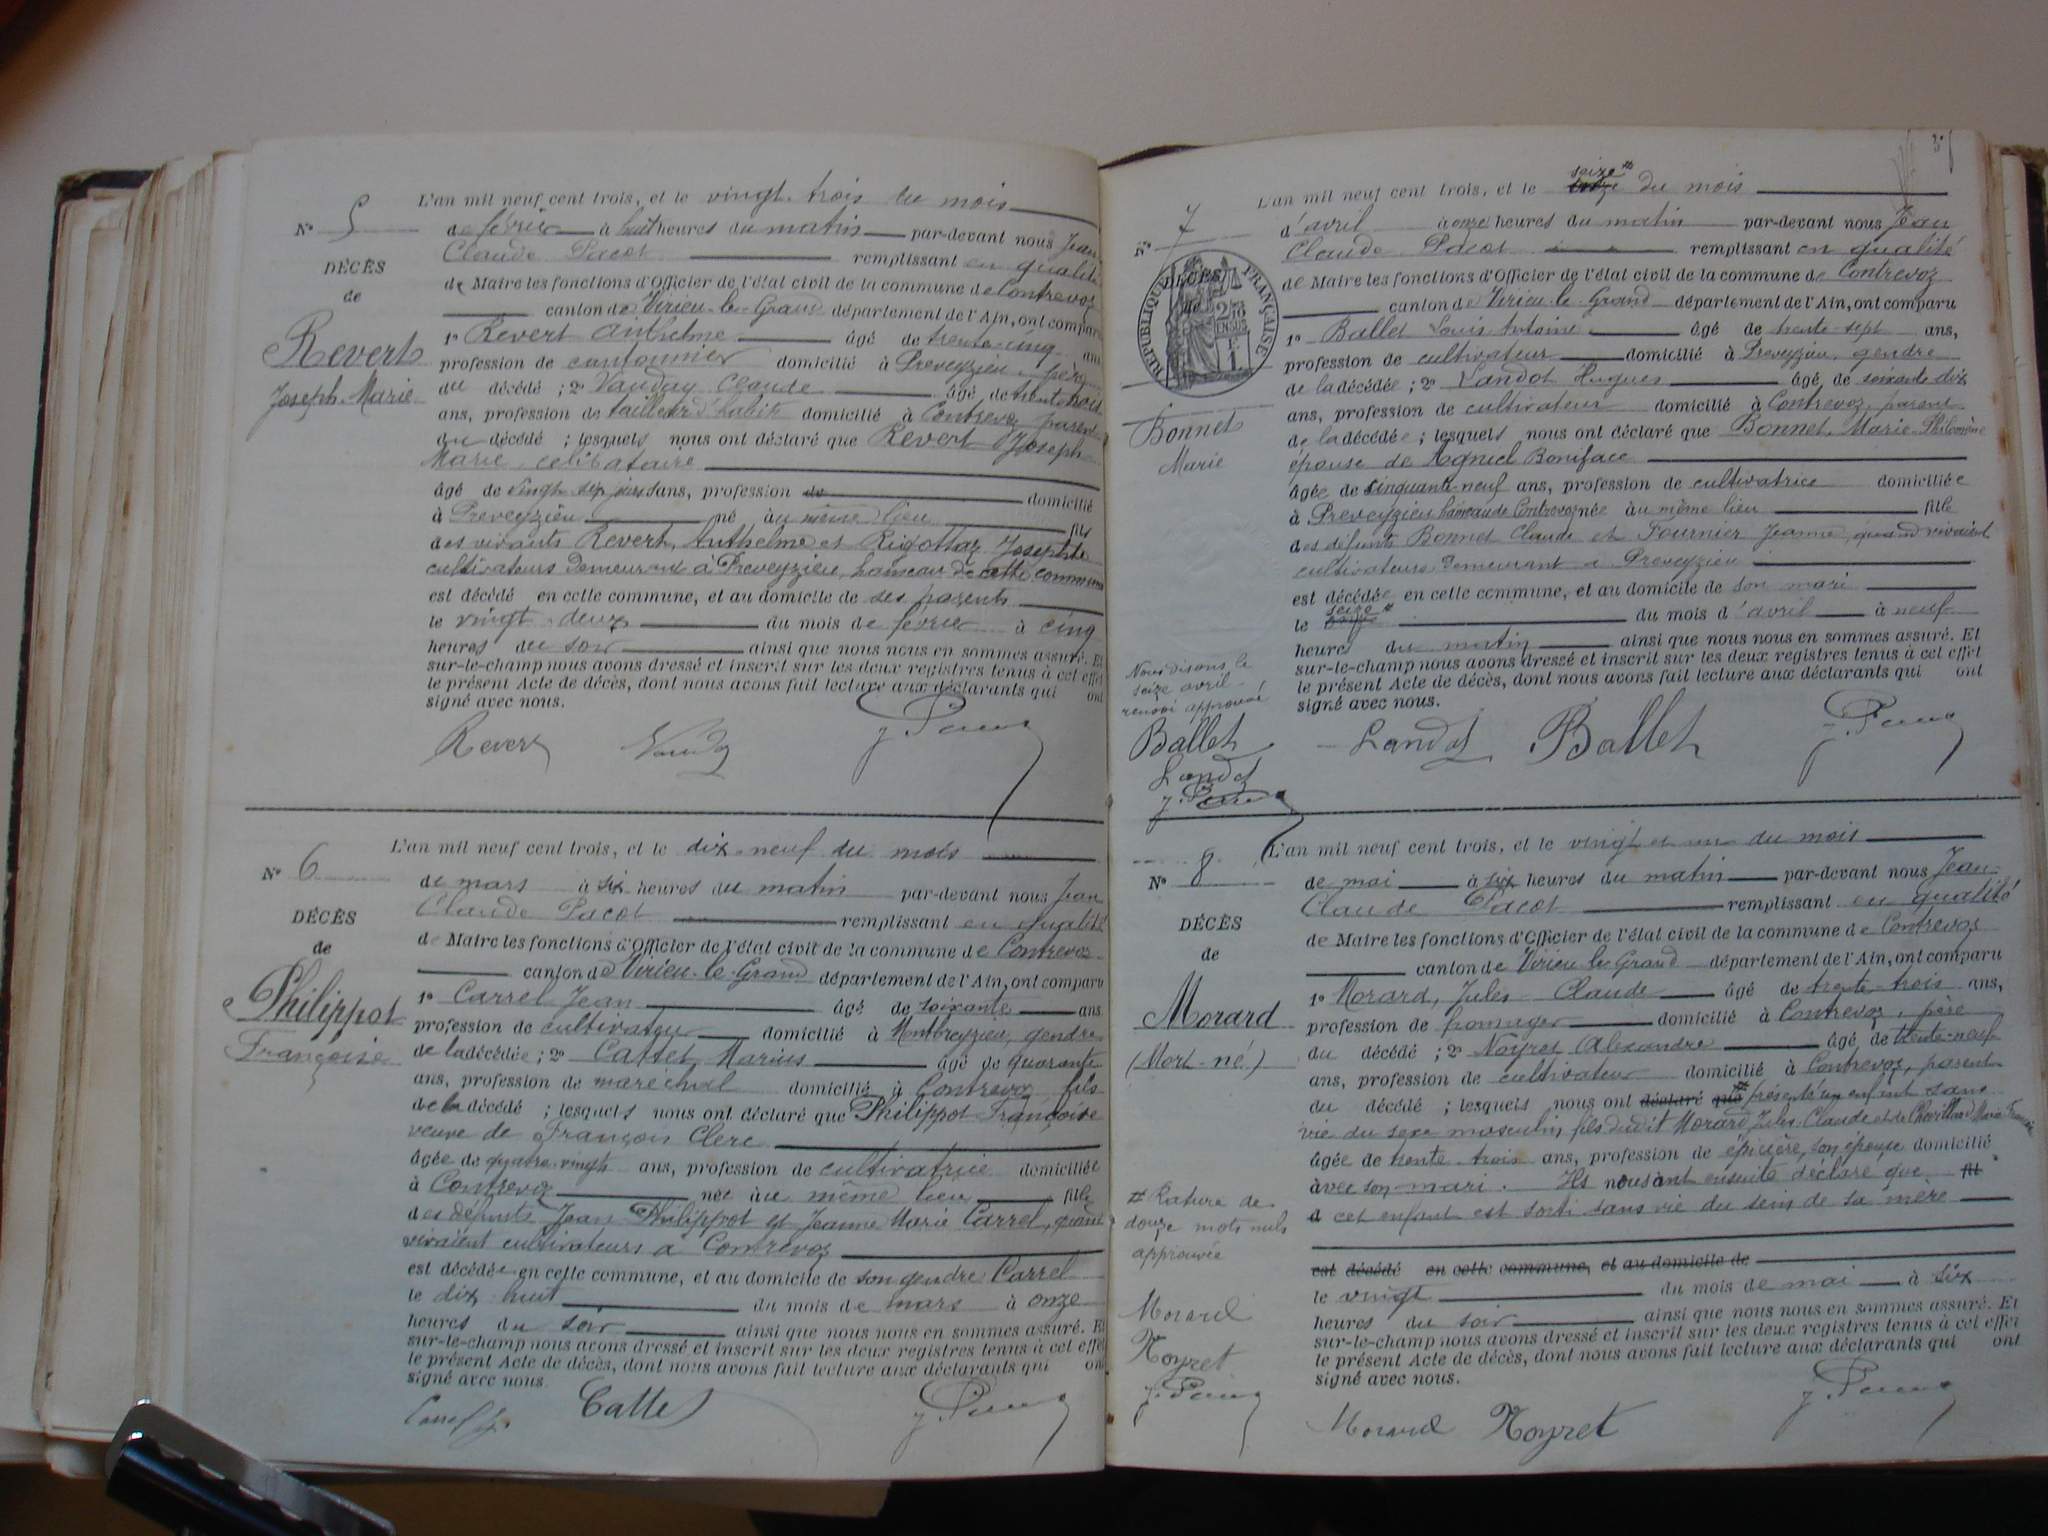 L'an mil neuf cent trois, et le vingt trois du mois
N° 5
de février à huit heures du matin par-devant nous Jean
Claude Pacot remplissant en qualité
DÉCÈS
de Maire les fonctions d'Officier de l'état civil de la commune de Contrevoz
de
canton de Virieu-le-Grand département de l'Ain, ont comparu
1° Revert Anthelme âgé de trente-cinq ans
Revert
profession de cantonnier domicilié à Preveyzieu, père
Joseph-Marie
du décédé ; 2° Vauday Claude âgé de trente trois
ans, profession de tailleur d'habits domicilié à Contrevoz parent
du décédé ; lesquels nous ont déclaré que Revert Joseph
Marie, célibataire
âgé de vingt six jours ans, profession de domicilié
à Preveyzieu né au même lieu fils
des vivants Revert, Anthelme et Rigottaz Josephte
cultivateurs demeurant à Preveyzieu, hameau de cette commune
est décédé en cette commune, et au domicile de ses parents
le vingt-deux du mois de février à cinq
heures du soir ainsi que nous nous en sommes assuré. Et
sur-le-champ nous avons dressé et inscrit sur les deux registres tenus à cet effet
le présent Acte de décès, dont nous avons fait lecture aux déclarants qui ont
signé avec nous.
Revert Vauday
L'an mil neuf cent trois, et le dix-neuf du mois
N° 6
de mars à six heures du matin par-devant nous Jean
Claude Pacot remplissant en qualité
DÉCÈS
de Maire les fonctions d'Officier de l'état civil de la commune de Contrevoz
de
canton de Virieu-le-Grand département de l'Ain, ont comparu
Philippot
1° Carrel Jean âgé de soixante ans
Françoise
profession de cultivateur domicilié à Montbreyzieu, gendre
de la décédée ; 2° Cattet Marius âgé de quarante
ans, profession de maréchal domicilié à Contrevoz, fils
de la décédé ; lesquels nous ont déclaré que Philippot Françoise
veuve de François Clerc
âgée de quatre-vingts ans, profession de cultivatrice domiciliée
à Contrevoz née au même lieu fille
des défunts Jean Philippot et Jeanne Marie Carrel, quand
vivaient cultivateurs à Contrevoz
est décédée en cette commune, et au domicile de son gendre Carrel
le dix huit du mois de mars à onze
heures du soir ainsi que nous nous en sommes assuré. Et
sur-le-champ nous avons dressé et inscrit sur les deux registres tenus à cet effet
le présent Acte de décès, dont nous avons fait lecture aux déclarants qui ont
signé avec nous.
Carrel Cattet
L'an mil neuf cent trois, et le seize du mois
N° 7
d'avril à onze heures du matin par-devant nous Jean
Claude Pacot remplissant en qualité
DÉCÈS
de
RÉPUBLIQUE FRANÇAISE
de Maire les fonctions d'Officier de l'état civil de la commune de Contrevoz
canton de Virieu-le-Grand département de l'Ain, ont comparu
1° Ballet Louis Antoine âgé de trente-sept ans,
profession de cultivateur domicilié à Preveyzieu, gendre
de la décédée ; 2° Landot Hugues âgé de soixante dix
Bonnet
Marie
ans, profession de cultivateur domicilié à Contrevoz, parent
de la décédée ; lesquels nous ont déclaré que Bonnet, Marie-Philomène
épouse de Agniel Boniface
âgée de cinquante-neuf ans, profession de cultivatrice domiciliée
à Preveyzieu hameau de Contrevoz née au même lieu fille
des défunts Bonnet Claude et Fournier Jeanne, quand vivaient
cultivateurs demeurant à Preveyzieu
est décédée en cette commune, et au domicile de son mari
le seize du mois d'avril à neuf
heures du matin ainsi que nous nous en sommes assuré. Et
sur-le-champ nous avons dressé et inscrit sur les deux registres tenus à cet effet
le présent Acte de décès, dont nous avons fait lecture aux déclarants qui ont
signé avec nous.
Nous disons le
seize avril
renvoi approuvé
Ballet
Landot
Landot Ballet
L'an mil neuf cent trois, et le vingt et un du mois
N° 8
de mai à six heures du matin par-devant nous Jean
Claude Pacot remplissant en qualité
DÉCÈS
de Maire les fonctions d'Officier de l'état civil de la commune de Contrevoz
de
canton de Virieu le Grand département de l'Ain, ont comparu
Morard
(Mort-né)
1° Morard, Jules Claude âgé de trente-trois ans,
profession de fromager domicilié à Contrevoz, père
du décédé ; 2° Noyret Alexandre âgé de trente-neuf
ans, profession de cultivateur domicilié à Contrevoz, parent
du décédé ; lesquels nous ont déclaré que présenté un enfant sans
vie du sexe masculin, fils dudit Morard, Jules Claude et de Chevillard Marie
âgée de trente-trois ans, profession de épicière, son épouse domicilié
avec son mari. Ils nous ont ensuite déclaré que fil
à cet enfant est sorti sans vie du sein de sa mère
est décédé en cette commune, et au domicile de
le vingt du mois de mai à six
heures du soir ainsi que nous nous en sommes assuré. Et
sur-le-champ nous avons dressé et inscrit sur les deux registres tenus à cet effet
le présent Acte de décès, dont nous avons fait lecture aux déclarants qui ont
signé avec nous.
# Rature de
douze mots nuls
approuvée
Morard
Noyret
Morard Noyret